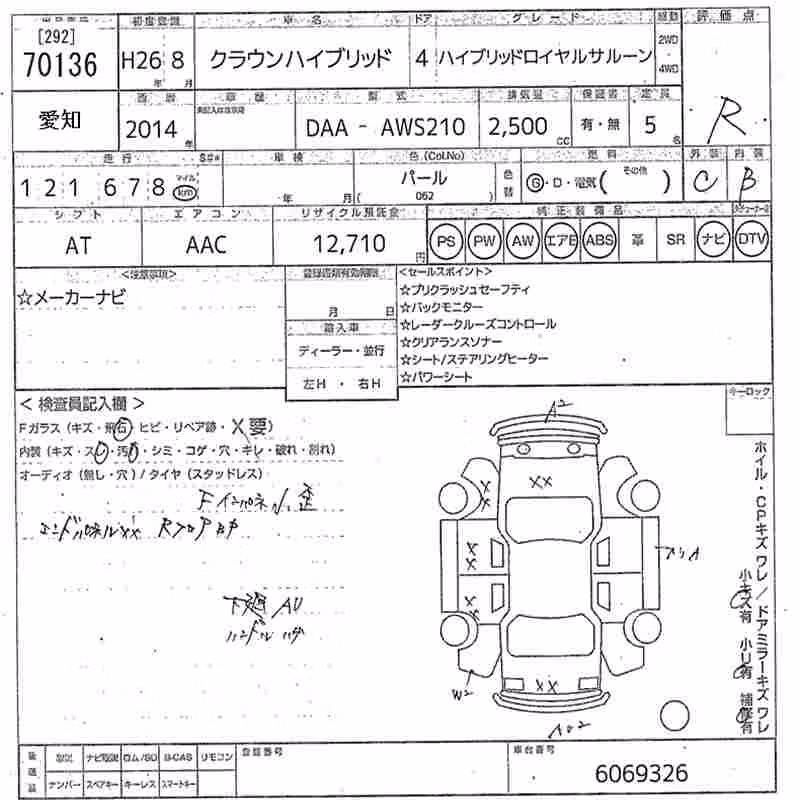 初度登録 車名 ドア グレード 駆動 評価点
[292]
70136 H26 8 年 月 クラウンハイブリッド 4 ハイブリッドロイヤルサルーン 2WD 4WD R
愛知 西暦 車歴 型式 排気量 保証書 定員
2014 年 DAA - AWS210 2,500 CC 有・無 5 名
走行 車検 色(Col.No) 燃料 外装 内装
121678 マイル km 年 月 パール ( 062 ) 色替 G・D・電気( その他 ) C B
シフト エアコン リサイクル預託金 純正装備品
AT AAC 12,710 円 PS PW AW エアB ABS 革 SR ナビ DTV
<注意事項> 登録書類有効期限 <セールスポイント>
☆メーカーナビ
月 日
輸入車
ディーラー・並行
左H・右H
☆プリクラッシュセーフティ
☆バックモニター
☆レーダークルーズコントロール
☆クリアランスソナー
☆シート/ステアリングヒーター
☆パワーシート
キーロック
<検査員記入欄>
Fガラス(キズ・飛石・ヒビ・リペア跡・X要)
内装(キズ・スレ・汚れ・シミ・コゲ・穴・キレ・破れ・割れ)
オーディオ(無し・穴)/タイヤ(スタッドレス)
Fインパネ小歪
エンドパネルXX
下廻AU
ハンドルハゲ
A2
XX
X
X
X
X
X
X
XX
W2
ホイル・CPキズワレ/ドアミラーキズワレ
小キズ有 小U有 補修有
後送品 ナビ取説 ロム/SD B-CAS リモコン 登録番号 車台番号
ナンバー スペアキー キーレス スマートキー
6069326